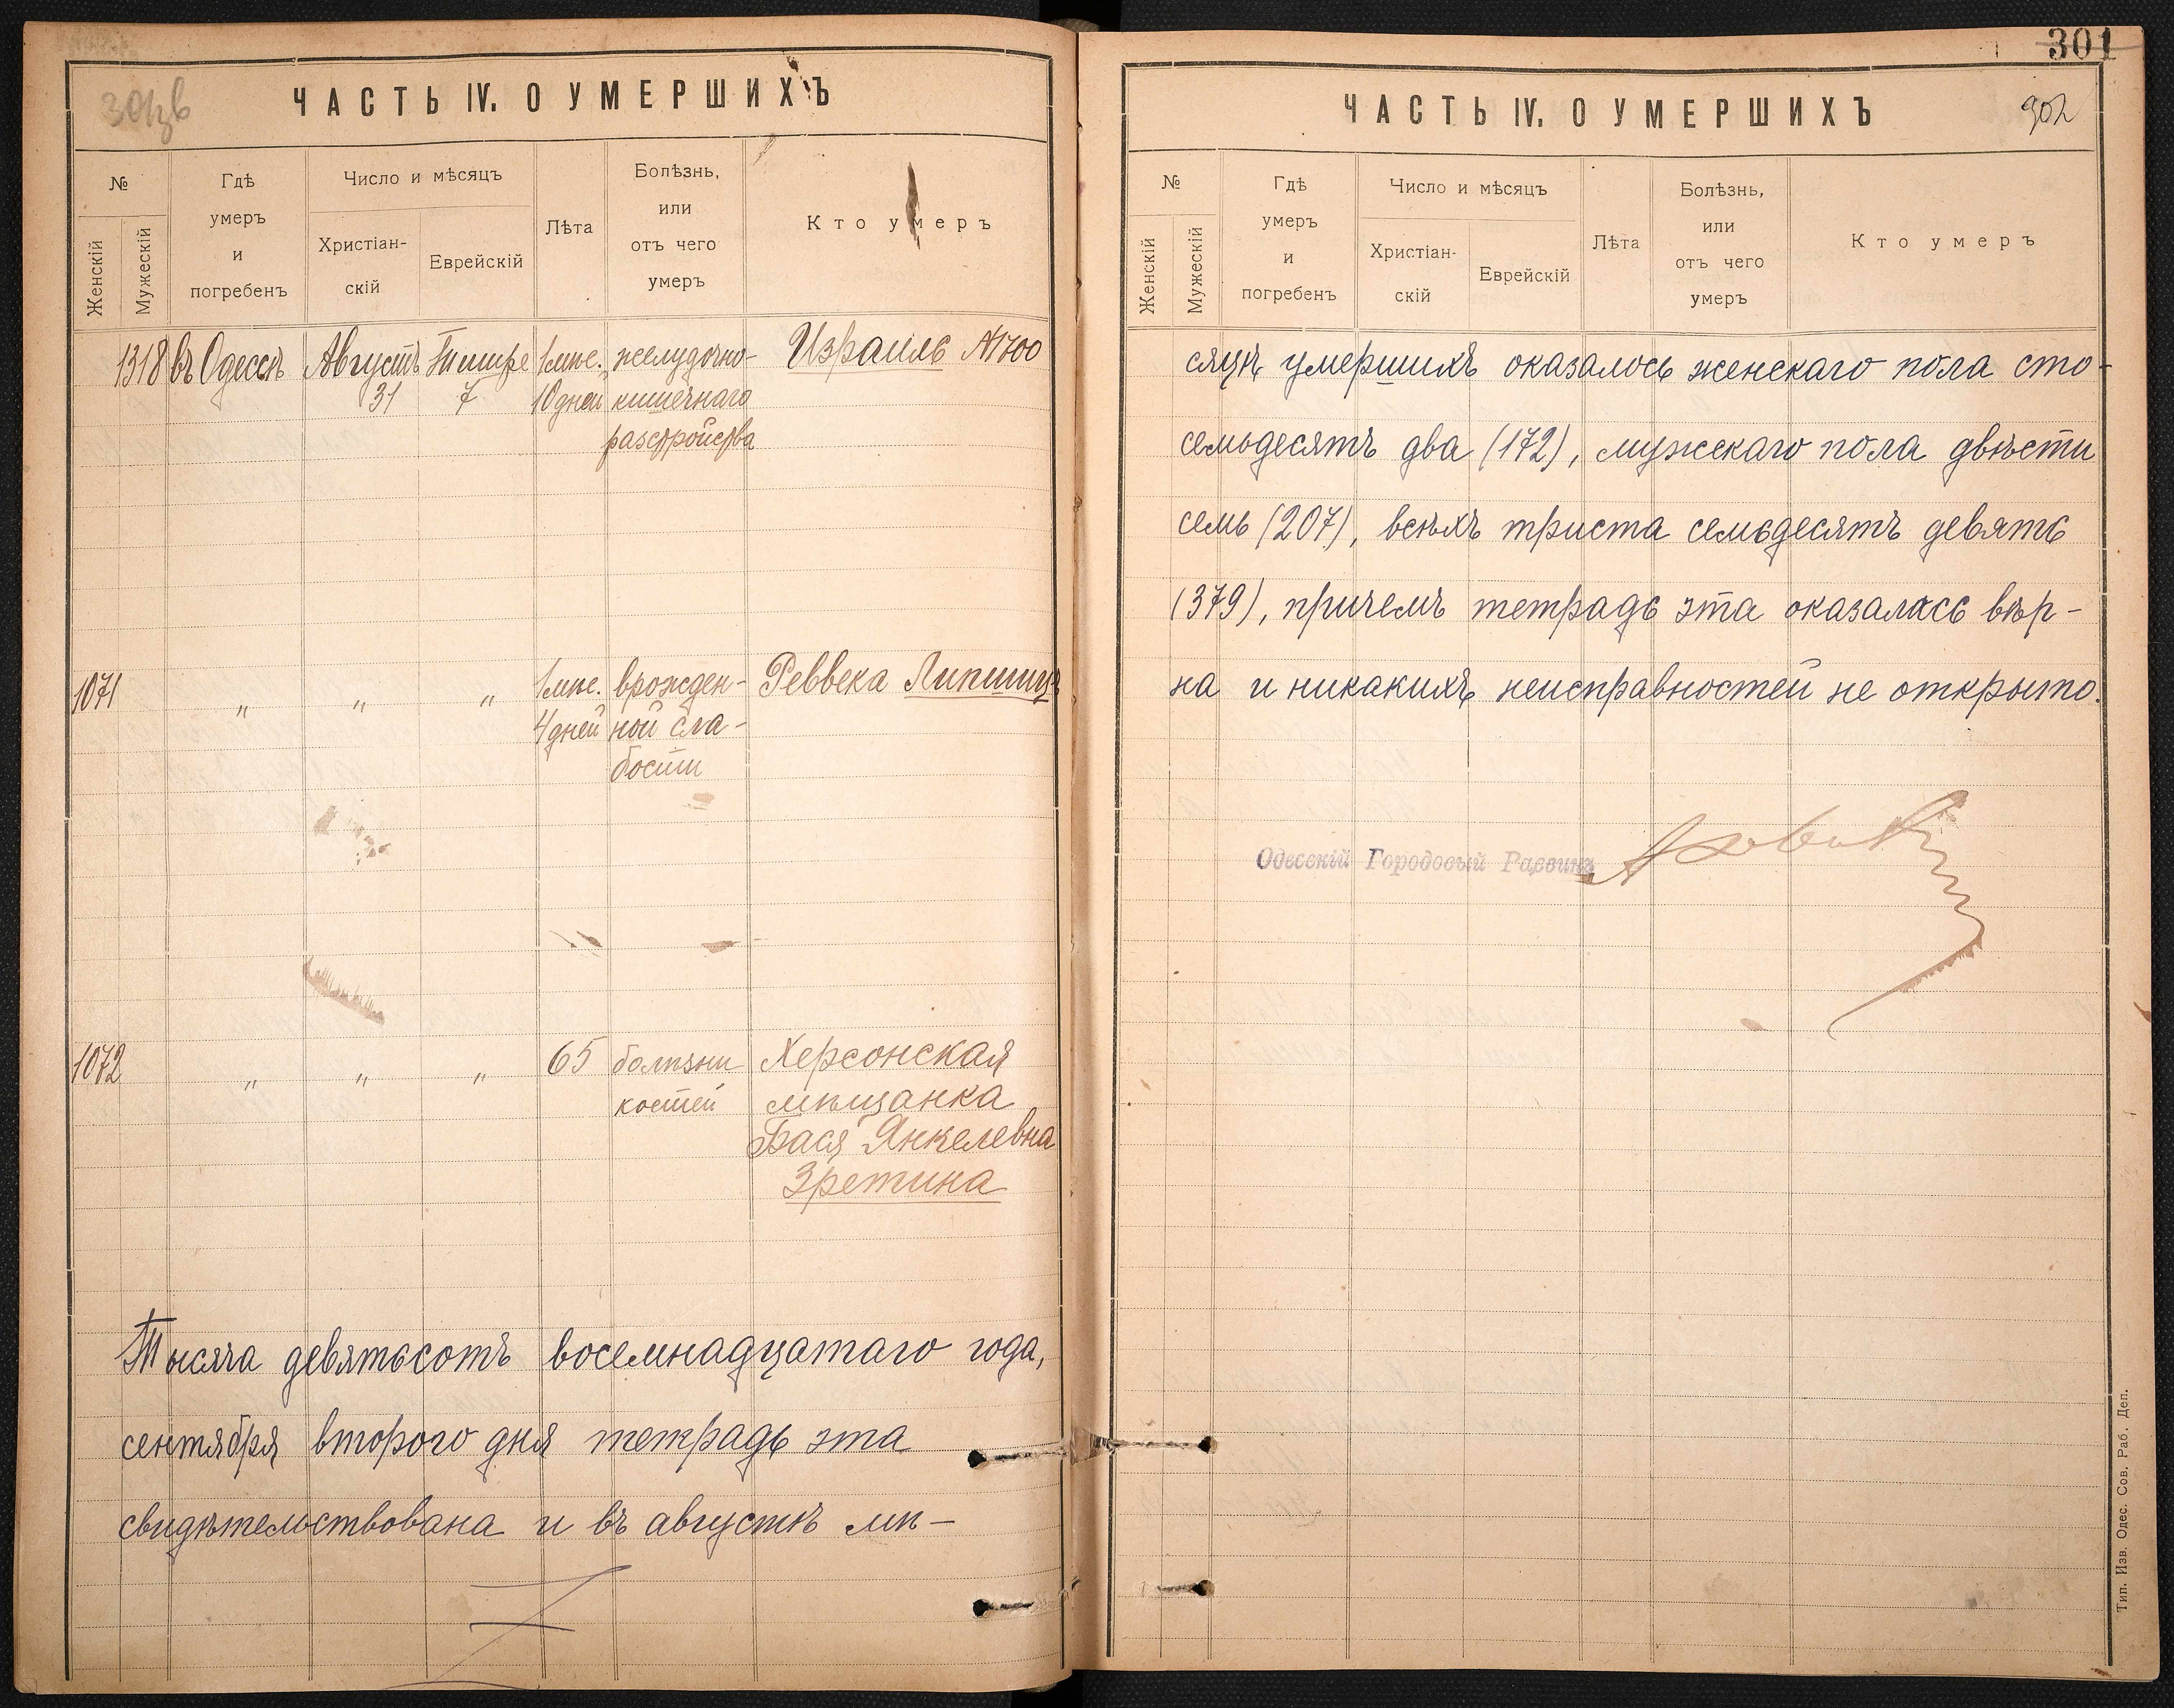 301
301зв
ЧАСТЬ IV. О УМЕРШИХЪ
№
Женскій
Мужескій
Гдѣ
умеръ
и
погребенъ
Число и мѣсяцъ
Христіан-
скій
Еврейскій
Лѣта
Болѣзнь,
или
отъ чего
умеръ
Кто умеръ
1318 въ Одессѣ Августъ Тишре 1 мѣс. желудочно- Израиль №1700
31 7 10 дней кишечнаго
разстройства
1071 " " " 1 мѣс. врожден- Реввека Липшицъ
4 дней ной сла-
бости
1072 " " " 65 болѣзни Херсонская
костей мѣщанка
Бася Янкелевна
Зретина
Тысяча девятьсотъ восемнадцатаго года,
сентября второго дня тетрадь эта
свидѣтельствована и въ августѣ мѣ-
ЧАСТЬ IV. О УМЕРШИХЪ
302
№
Женскій
Мужескій
Гдѣ
умеръ
и
погребенъ
Число и мѣсяцъ
Христіан-
скій
Еврейскій
Лѣта
Болѣзнь,
или
отъ чего
умеръ
Кто умеръ
сяцѣ умершихъ оказалось женскаго пола сто-
семьдесятъ два (172), мужскаго пола двѣсти
семь (207), всѣхъ триста семьдесятъ девять
(379), причемъ тетрадь эта оказалась вѣр-
на и никакихъ неисправностей не открыто.
Одесскій Городовый Раввинъ
Тип. Изв. Одес. Сов. Раб. Деп.